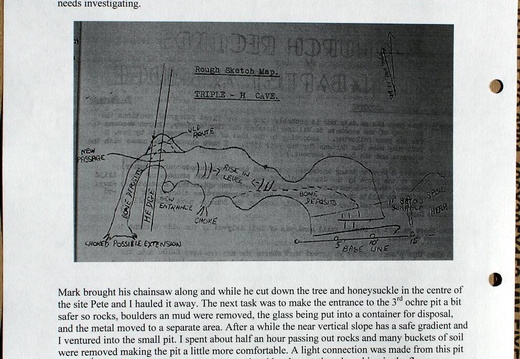 needs investigating.
Rough Sketch Map.
TRIPLE - H CAVE.
OLD
ROUTE
NEW
PASSAGE
RISE IN
LEVEL
BONE
DEPOSITS
HEDGE
NEW
ENTRANCE
CHOKE
CHOKED POSSIBLE EXTENSION
5 10 15
BASE LINE
Mark brought his chainsaw along and while he cut down the tree and honeysuckle in the centre of
the site Pete and I hauled it away. The next task was to make the entrance to the 3rd ochre pit a bit
safer so rocks, boulders an mud were removed, the glass being put into a container for disposal,
and the metal moved to a separate area. After a while the near vertical slope has a safe gradient and
I ventured into the small pit. I spent about half an hour passing out rocks and many buckets of soil
were removed making the pit a little more comfortable. A light connection was made from this pit